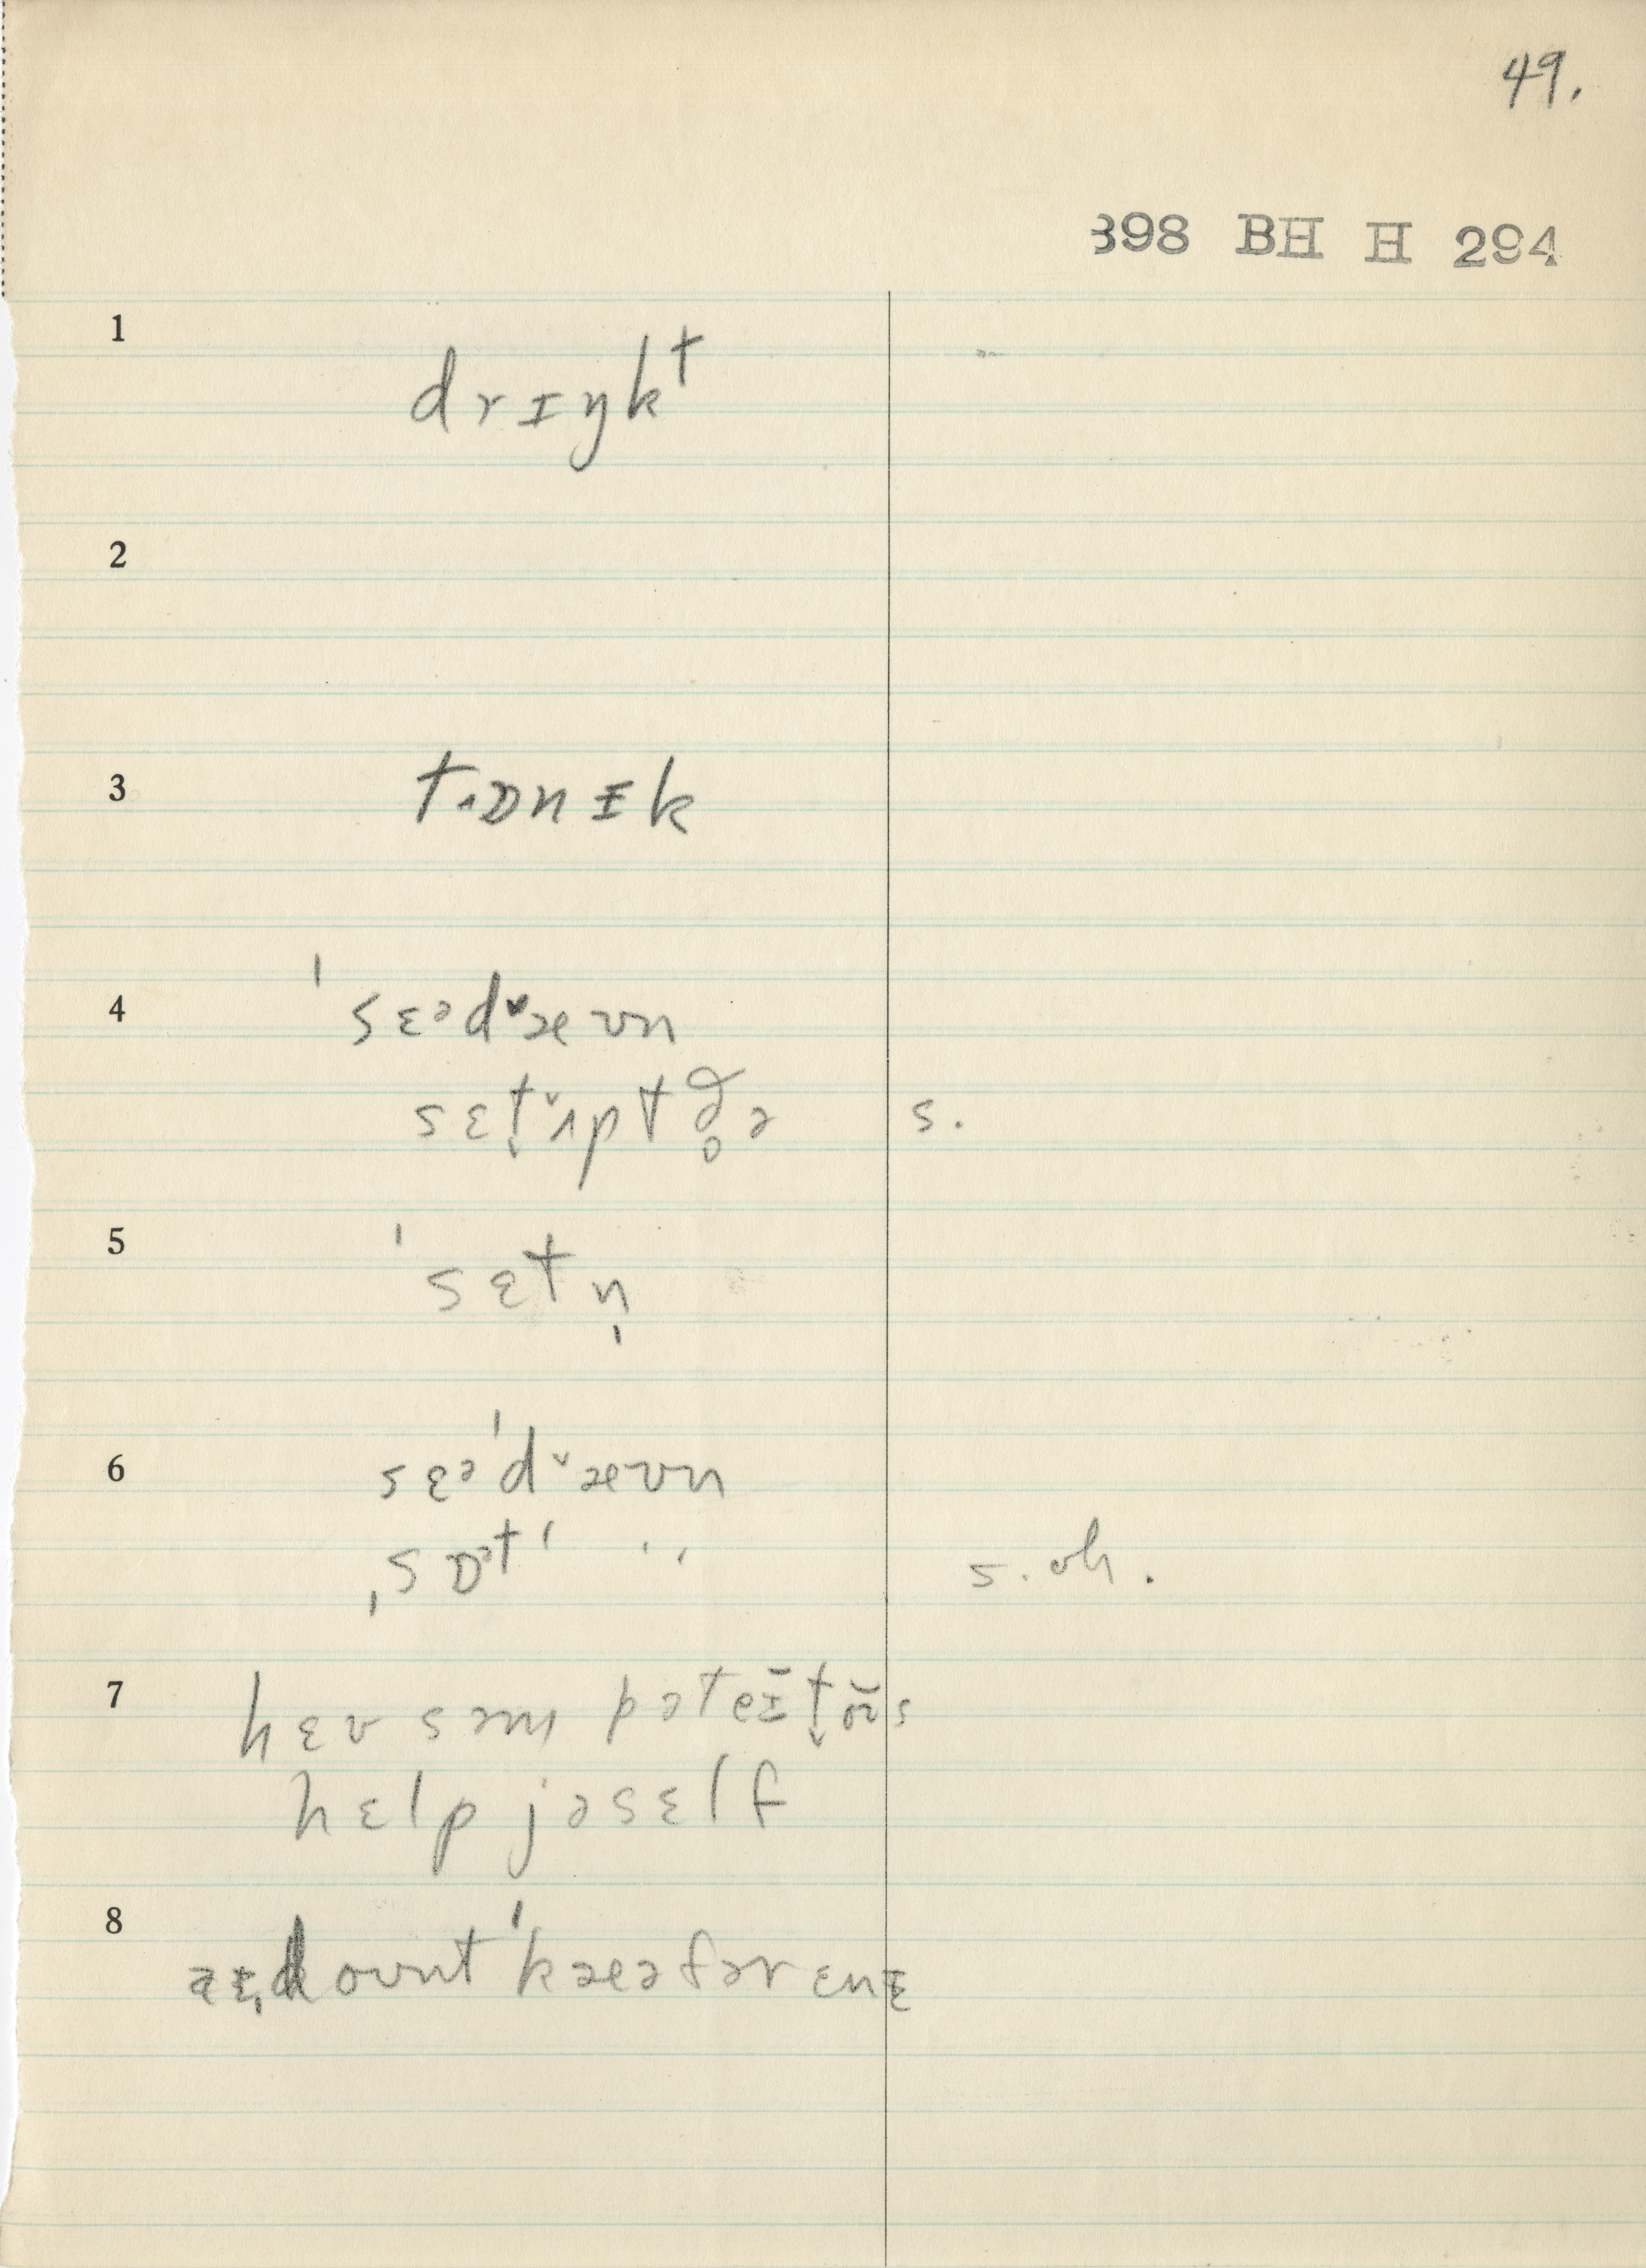 49.
398 BH H 294
1 drɪŋkt
2
3 tɒnɪk
4 ˈsɛədˇæʊn
sɛt̬ˇʌptðə̥ə s.
5 ˈsɛtn̩
6 sɛəˈdˇæʊn
ˌsɒətˈ " s. oh.
7 hɛv səm pəteɪ̆t̬oʊ̆s
help jəsɛlf
8 doʊntˈkæəfər ɛnɪ